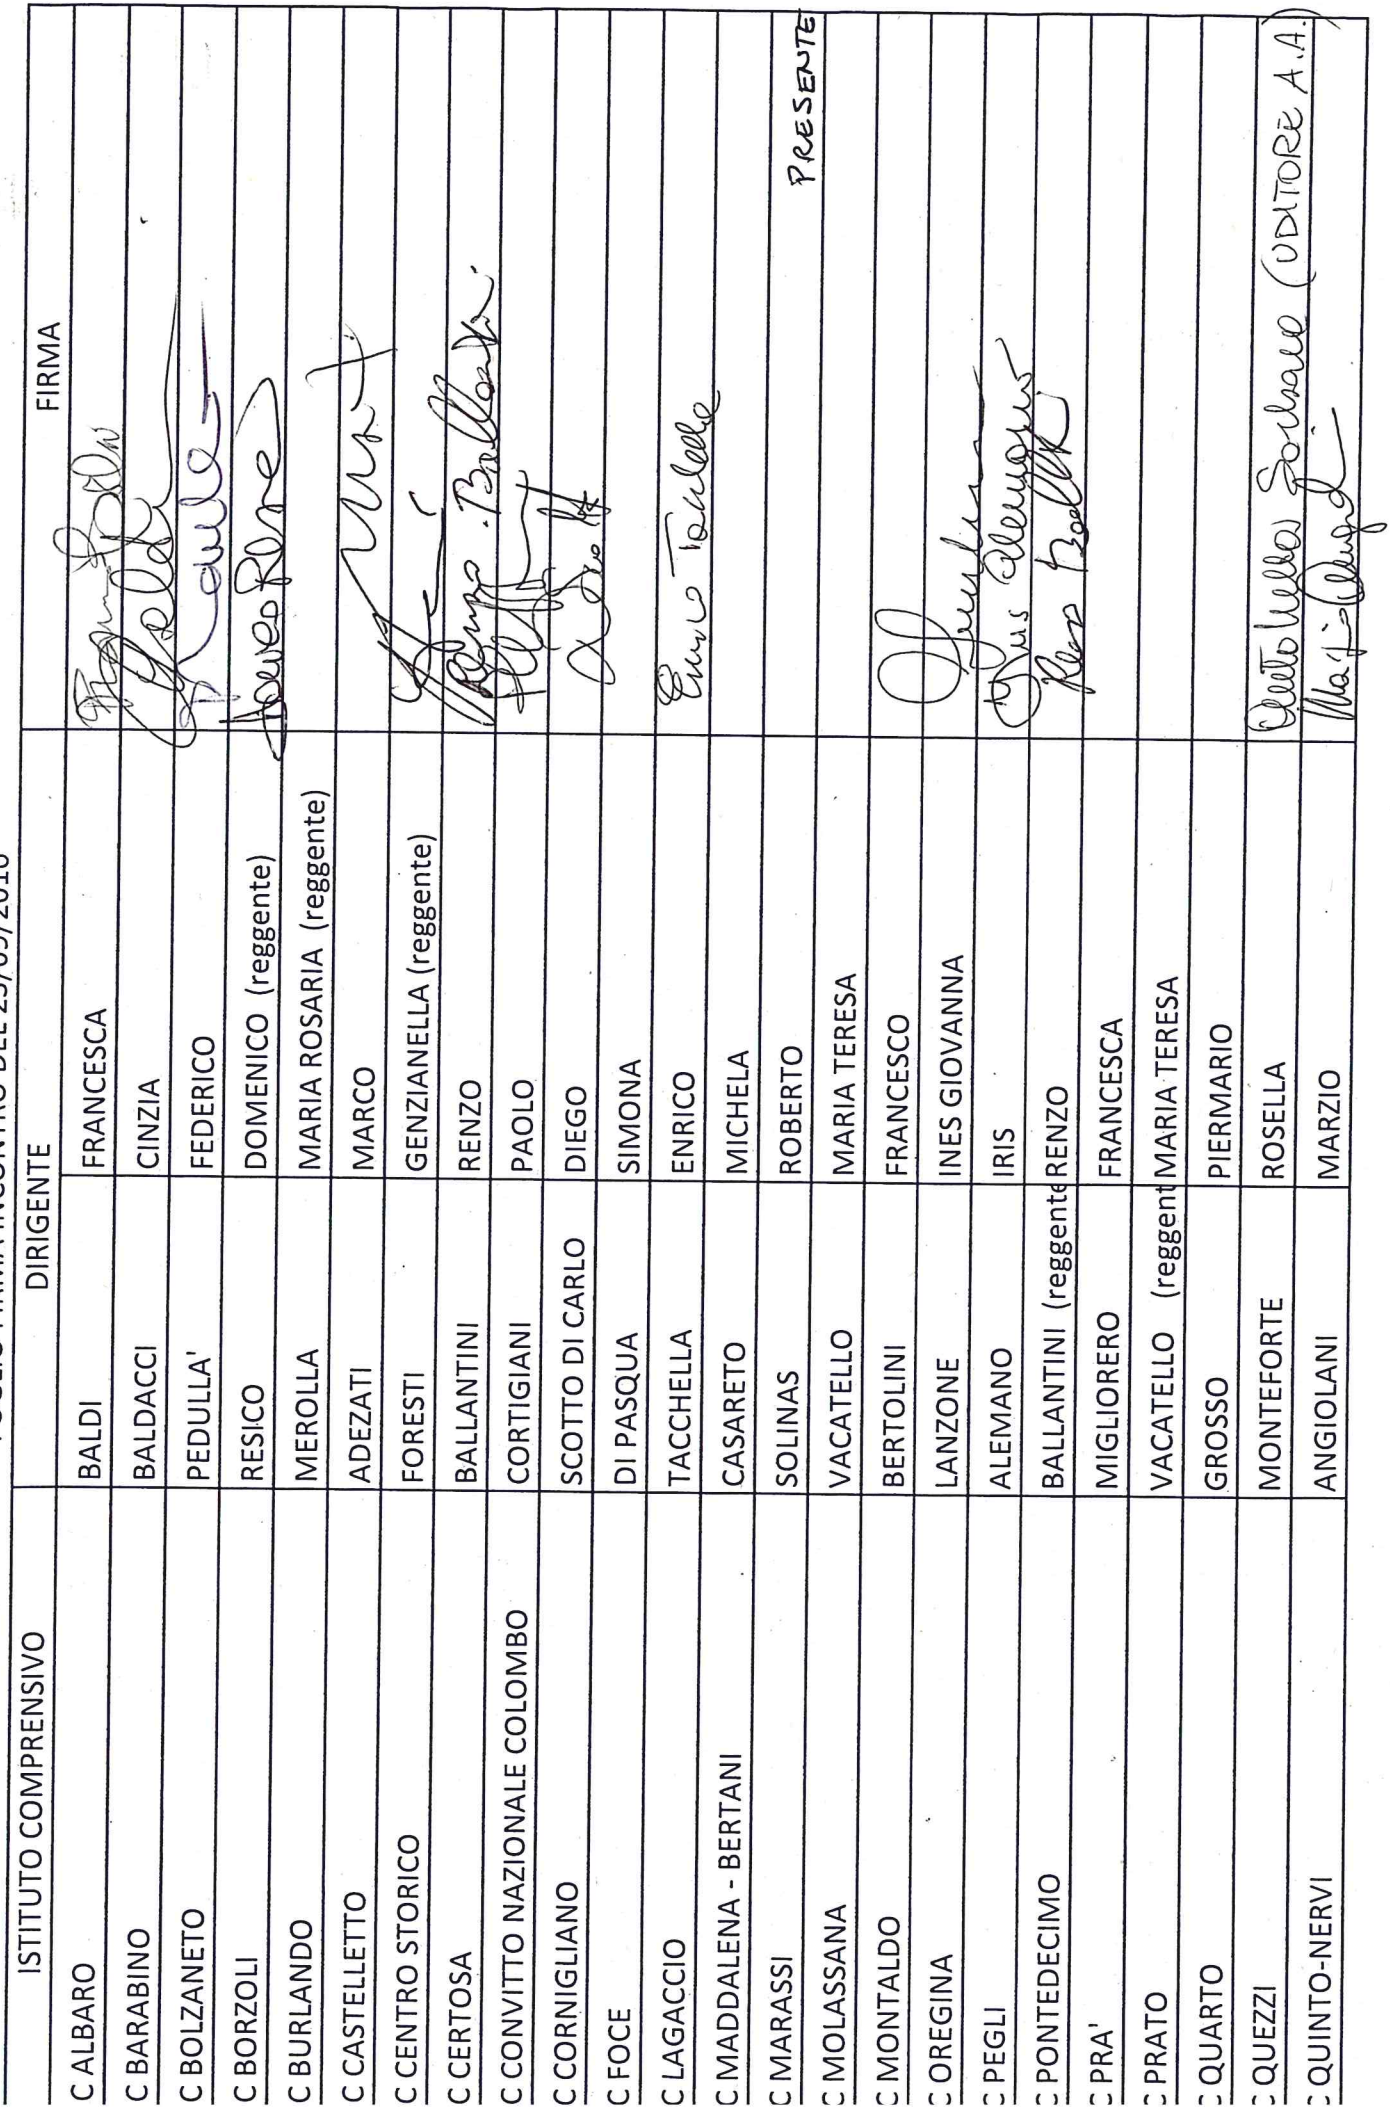 FOGLIO FIRMA INCONTRO DEL
ISTITUTO COMPRENSIVO DIRIGENTE FIRMA
C ALBARO BALDI FRANCESCA
C BARABINO BALDACCI CINZIA
C BOLZANETO PEDULLA' FEDERICO
C BORZOLI RESICO DOMENICO (reggente)
C BURLANDO MEROLLA MARIA ROSARIA (reggente)
C CASTELLETTO ADEZATI MARCO
C CENTRO STORICO FORESTI GENZIANELLA (reggente)
C CERTOSA BALLANTINI RENZO Renzo Ballantini
C CONVITTO NAZIONALE COLOMBO CORTIGIANI PAOLO
C CORNIGLIANO SCOTTO DI CARLO DIEGO
C FOCE DI PASQUA SIMONA
C LAGACCIO TACCHELLA ENRICO Enrico Tacchella
C MADDALENA - BERTANI CASARETO MICHELA
C MARASSI SOLINAS ROBERTO PRESENTE
C MOLASSANA VACATELLO MARIA TERESA
C MONTALDO BERTOLINI FRANCESCO
C OREGINA LANZONE INES GIOVANNA
C PEGLI ALEMANO IRIS Iris Alemano
C PONTEDECIMO BALLANTINI (reggente RENZO
C PRA' MIGLIORERO FRANCESCA
C PRATO VACATELLO (reggent MARIA TERESA
C QUARTO GROSSO PIERMARIO
C QUEZZI MONTEFORTE ROSELLA (UDITORE A.A.)
C QUINTO-NERVI ANGIOLANI MARZIO Marzio Angiolani